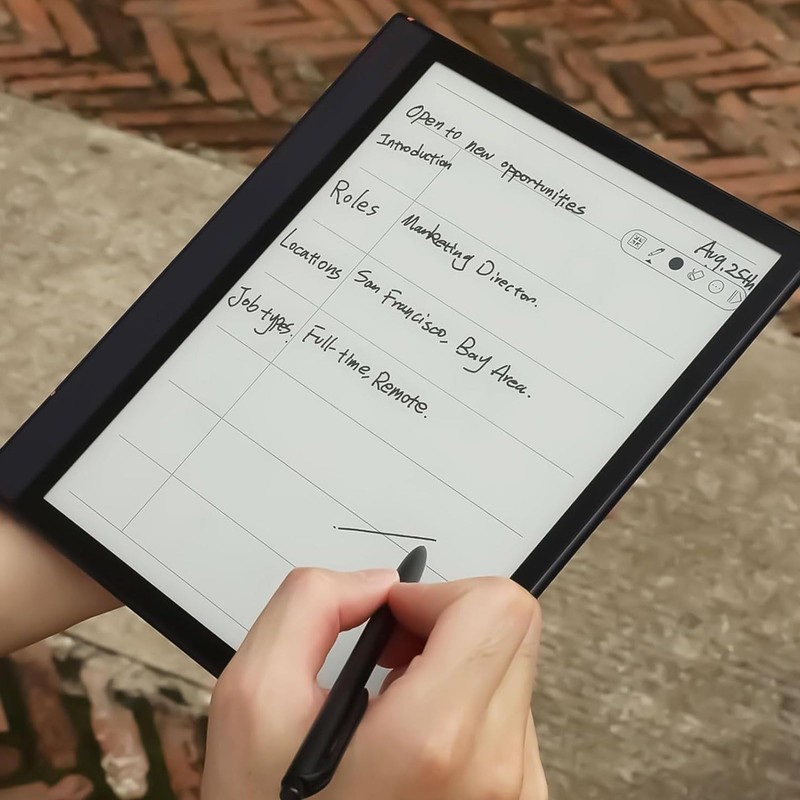 Open to new opportunities
Aug. 25th
Introduction
Roles Marketing Director.
Locations San Francisco, Bay Area.
Job types: Full-time, Remote.